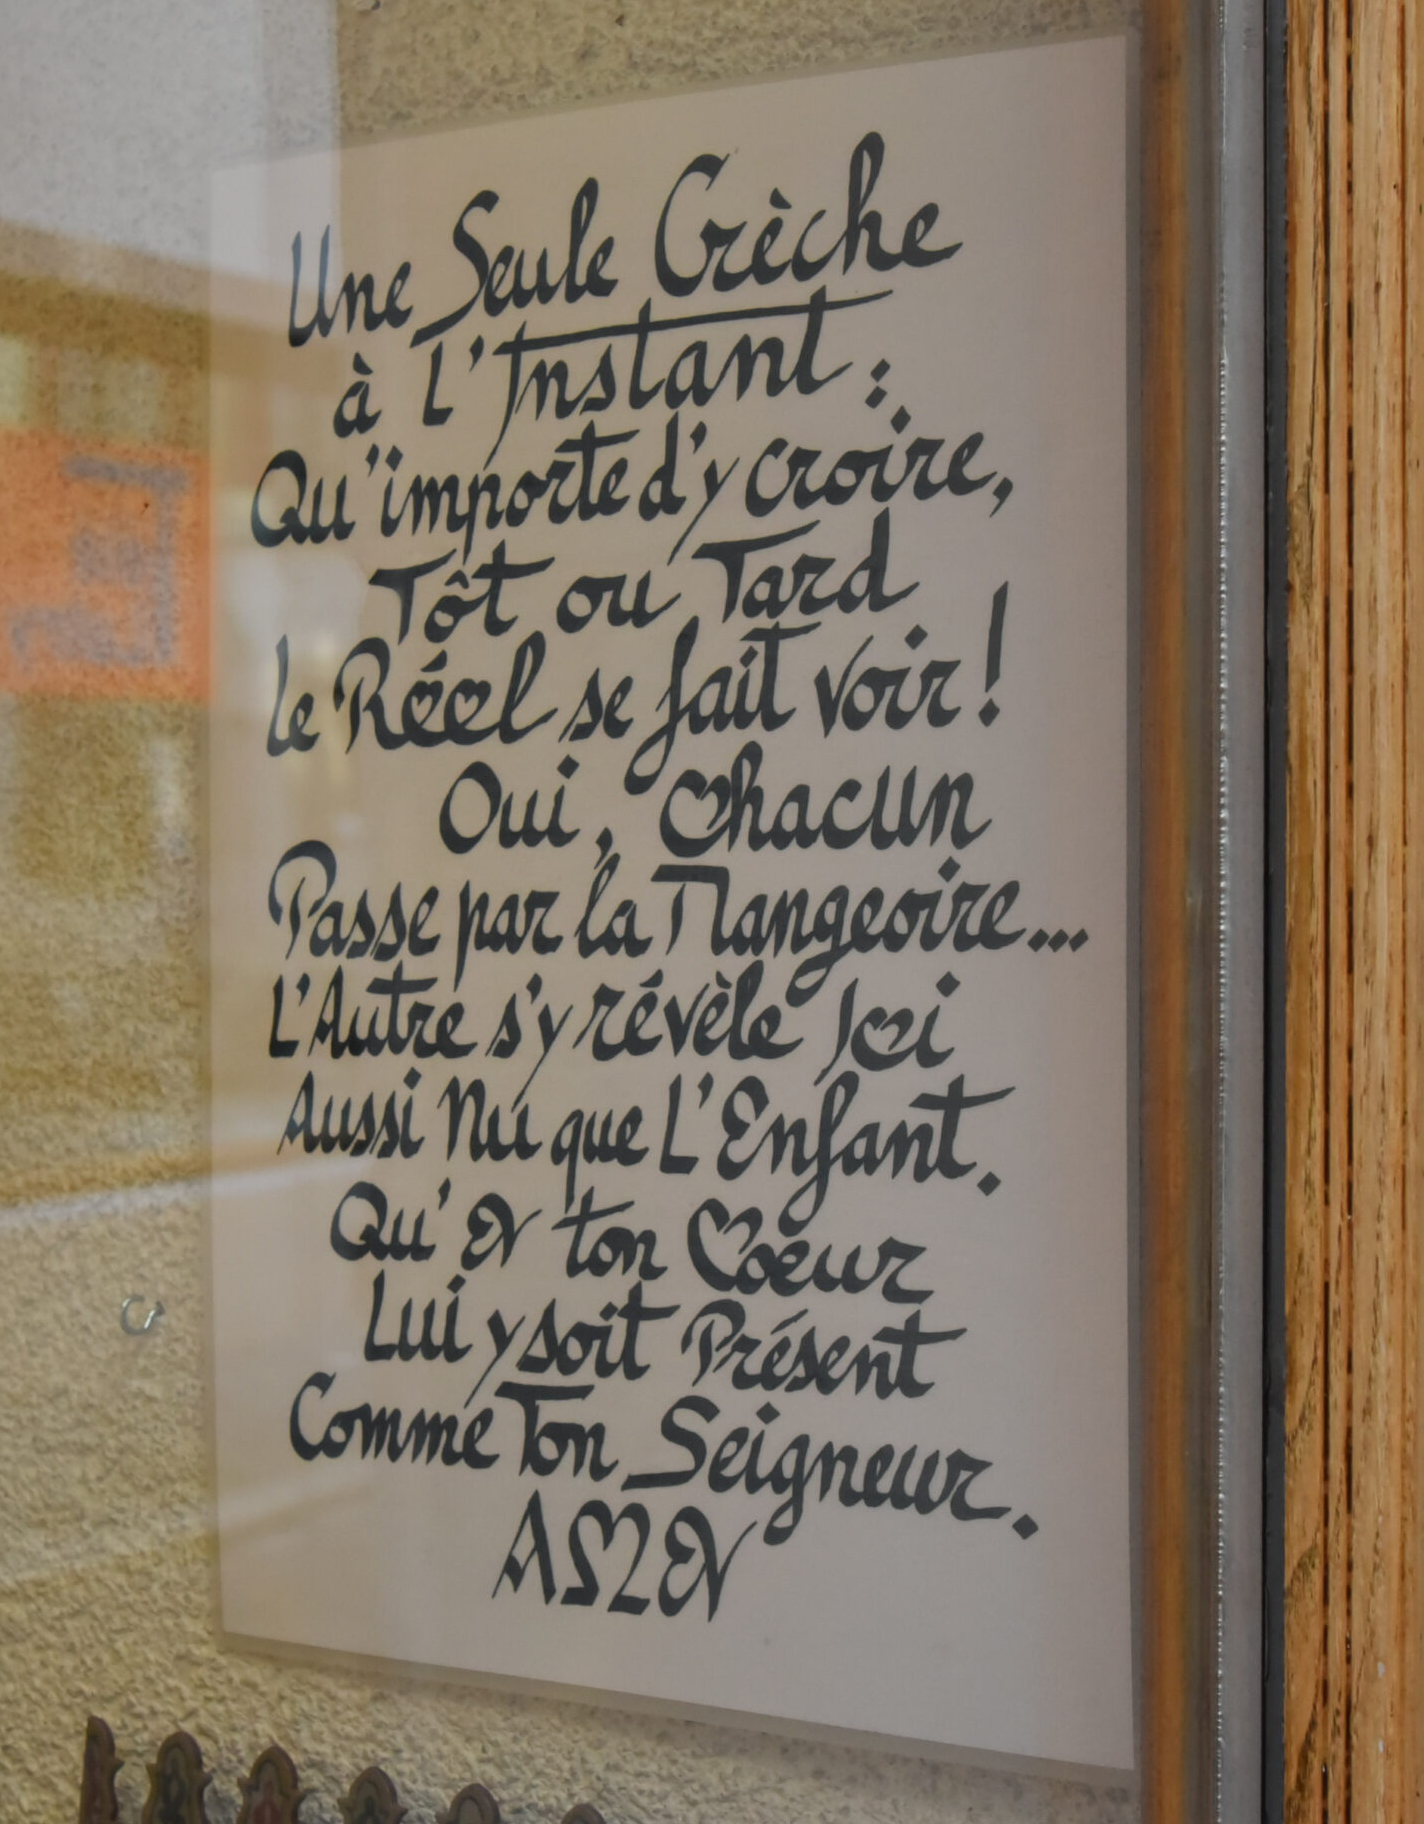 Une Seule Crèche
à L'Instant :
Qu'importe d'y croire,
Tôt ou Tard
le Réel se fait voir !
Oui, Chacun
Passe par la Mangeoire...
L'Autre s'y révèle Ici
Aussi Nu que L'Enfant.
Qu'EN ton Coeur
Lui y soit Présent
Comme Ton Seigneur.
AMEN